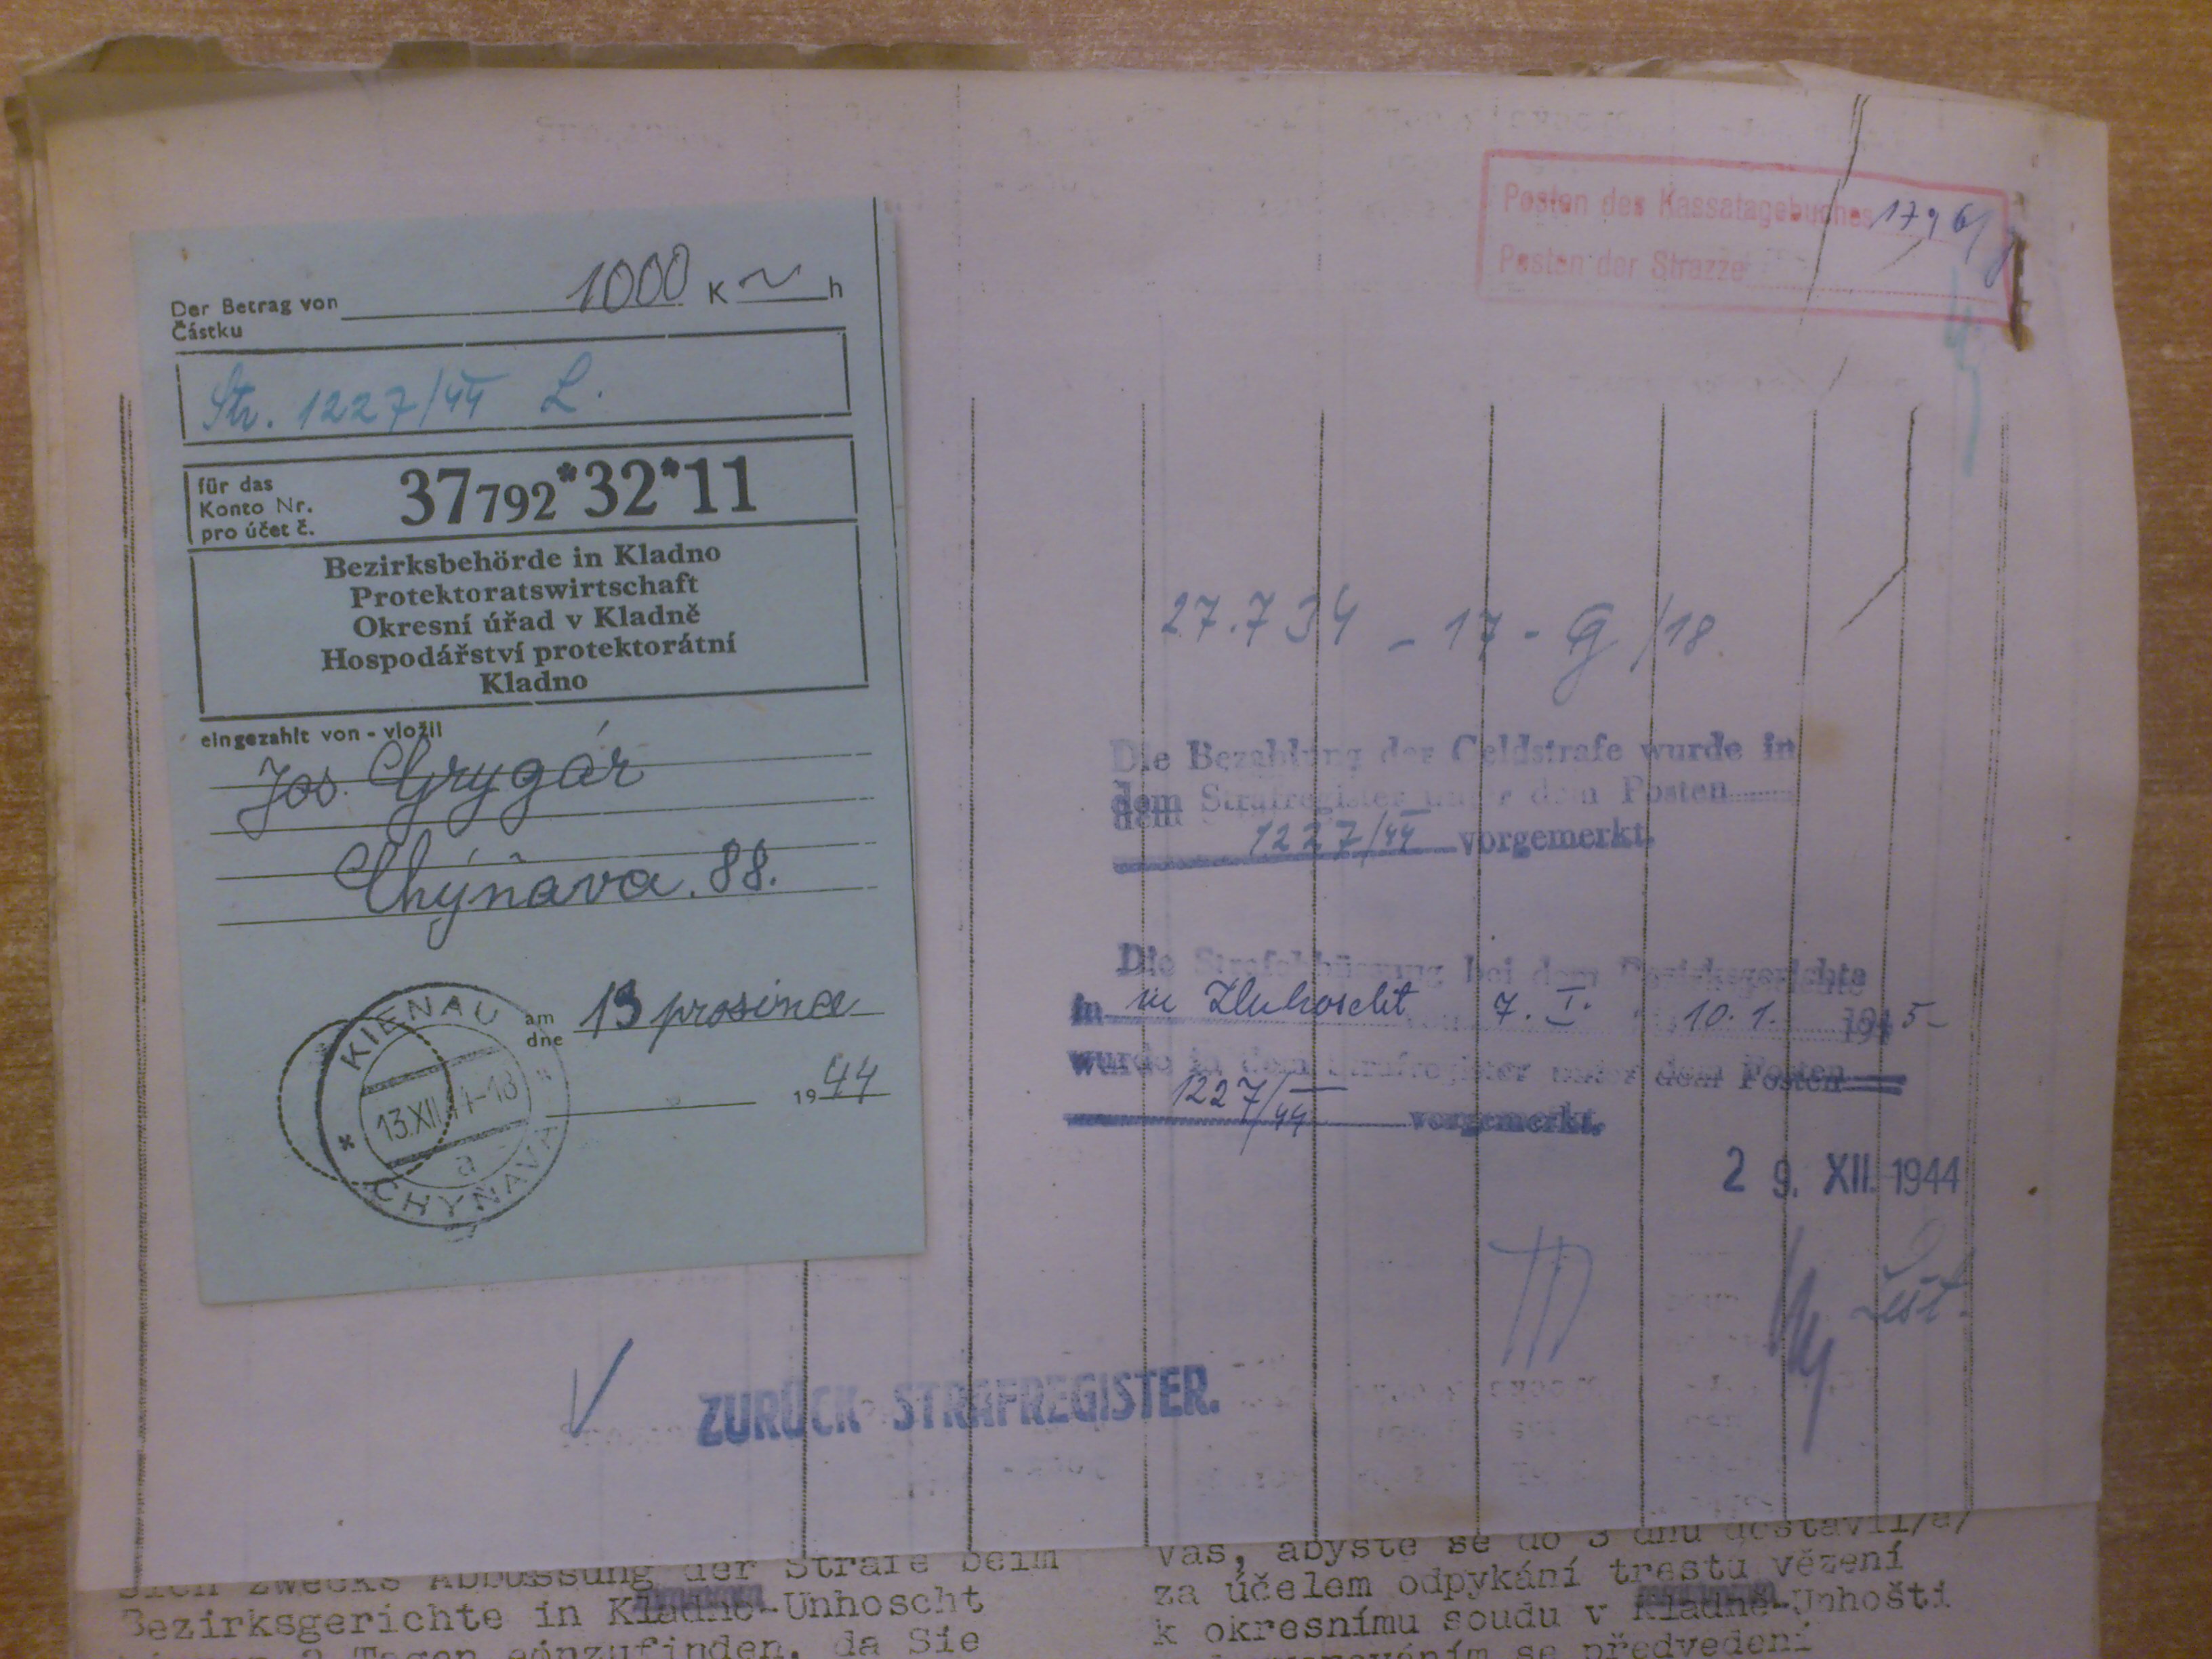 Der Betrag von 1000 K ~ h
Částku
Str. 1227/44 L.
für das
Konto Nr.
pro účet č.
37792*32*11
Bezirksbehörde in Kladno
Protektoratswirtschaft
Okresní úřad v Kladně
Hospodářství protektorátní
Kladno
eingezahlt von - vložil
Jos. Grygár
Chýňava. 88.
am
dne
13 prosince
1944
KIENAU
13.XII
a
CHÝŇAVA
Posten des Kassatagebuches
Posten der Strazze
27.734 - 17 - G /18.
Die Bezahlung der Geldstrafe wurde in
dem Strafregister unter dem Posten
1227/44 vorgemerkt.
Die Strafabbüssung bei dem Bezirksgerichte
in 7. I. 10. 1. 1945
wurde in dem Strafregister unter dem Posten
1227/44 vorgemerkt.
29. XII. 1944
ZURÜCK STRAFREGISTER.
sich zwecks Abbüssung der Strafe beim
Bezirksgerichte in Kladno-Unhoscht
3 Tagen einzufinden, da Sie
Vás, abyste se do 3 dnů dostavil/a/
za účelem odpykání trestu vězení
k okresnímu soudu v Kladně-Unhošti
se předvedení